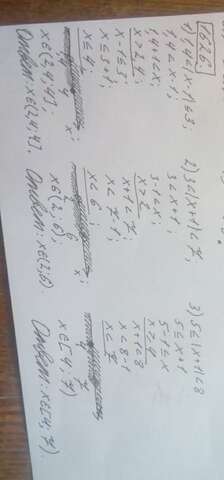 626
1) 1,4<|x-1|≤3,
1,4<x-1;
1,4+1<x;
x>2,4;
x-1≤3;
x≤3+1;
x≤4;
2,4 4 x;
x∈(2,4;4].
Ответ: x∈(2,4;4].
2) 3<|x+1|<7
3<x+1;
3-1<x;
x>2
x+1<7;
x<7-1;
x<6;
2 6 x;
x∈(2;6);
Ответ: x∈(2;6)
3) 5≤|x+1|<8
5≤x+1
5-1≤x
x≥4
x+1<8
x<8-1
x<7
4 7
x∈[4;7)
Ответ: x∈[4;7).